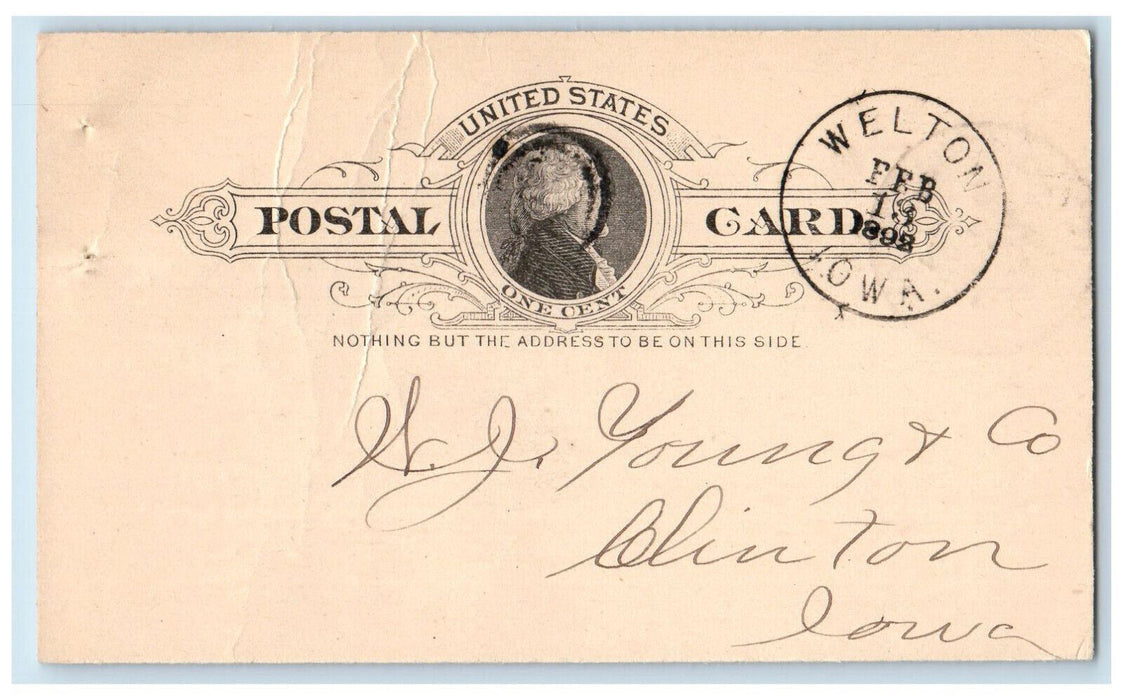 UNITED STATES
POSTAL CARD
ONE CENT
NOTHING BUT THE ADDRESS TO BE ON THIS SIDE.
WELTON
FEB
1892
IOWA.
W. J. Young & Co
Clinton
Iowa